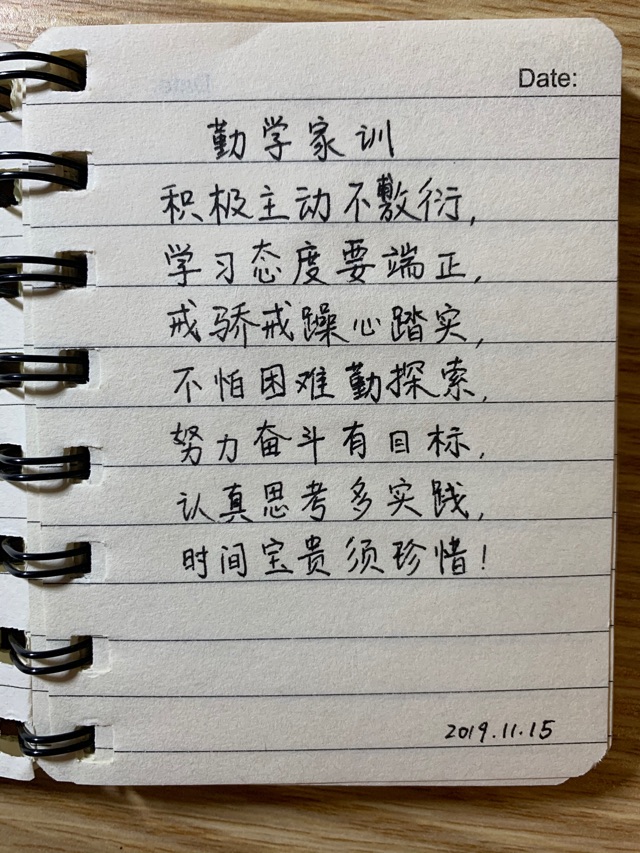 Date:
勤学家训
积极主动不敷衍,
学习态度要端正,
戒骄戒躁心踏实,
不怕困难勤探索,
努力奋斗有目标,
认真思考多实践,
时间宝贵须珍惜!
2019.11.15